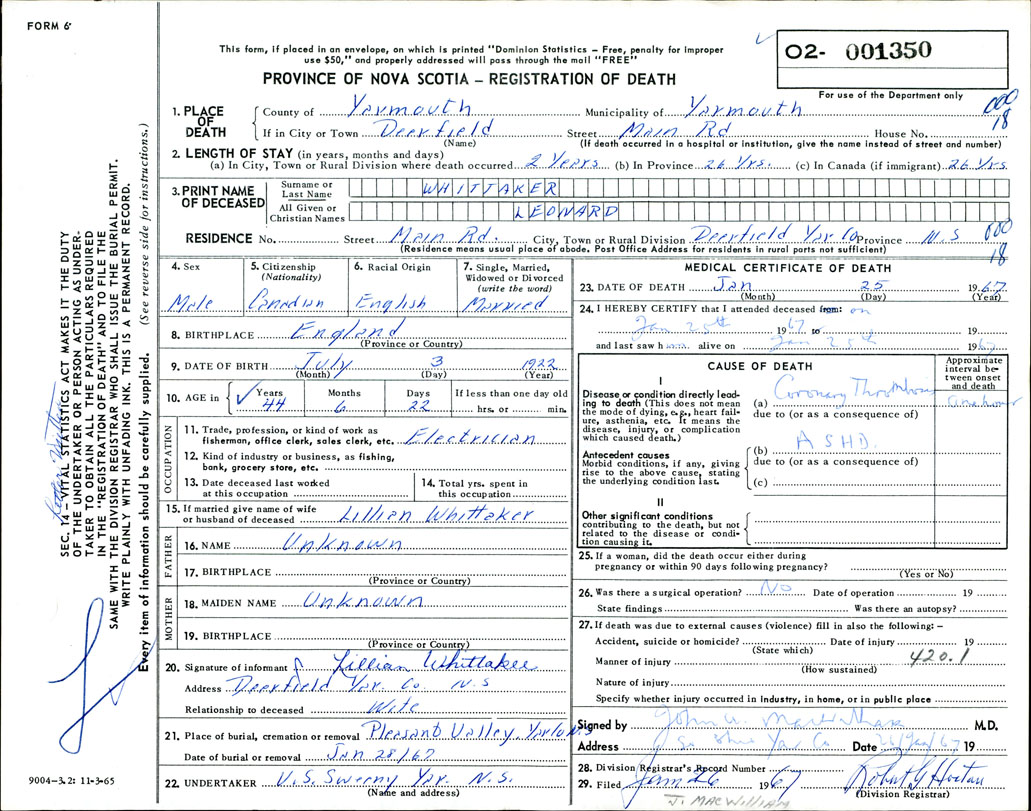 FORM 6
This form, if placed in an envelope, on which is printed "Dominion Statistics – Free, penalty for improper
use $50," and properly addressed will pass through the mail "FREE"
02- 001350
For use of the Department only
PROVINCE OF NOVA SCOTIA – REGISTRATION OF DEATH
000
18
1. PLACE OF DEATH County of Yarmouth Municipality of Yarmouth
If in City or Town Deerfield Street Main Rd House No.
(Name) (If death occurred in a hospital or institution, give the name instead of street and number)
2. LENGTH OF STAY (in years, months and days)
(a) In City, Town or Rural Division where death occurred 2 Years (b) In Province 26 Yrs. (c) In Canada (if immigrant) 26 Yrs
3. PRINT NAME OF DECEASED Surname or Last Name WHITTAKER
All Given or Christian Names LEOWARD
RESIDENCE No. Street Main Rd. City, Town or Rural Division Deerfield Yar Co Province N.S
000
18
(Residence means usual place of abode. Post Office Address for residents in rural parts not sufficient)
4. Sex Male
5. Citizenship (Nationality) Canadian
6. Racial Origin English
7. Single, Married, Widowed or Divorced (write the word) Married
8. BIRTHPLACE England
(Province or Country)
9. DATE OF BIRTH July 3 1922
(Month) (Day) (Year)
10. AGE in Years Months Days If less than one day old
44 6 22 hrs. or min.
OCCUPATION
11. Trade, profession, or kind of work as
fisherman, office clerk, sales clerk, etc. Electrician
12. Kind of industry or business, as fishing,
bank, grocery store, etc.
13. Date deceased last worked
at this occupation
14. Total yrs. spent in
this occupation
15. If married give name of wife
or husband of deceased Lillian Whittaker
FATHER
16. NAME Unknown
17. BIRTHPLACE
(Province or Country)
MOTHER
18. MAIDEN NAME Unknown
19. BIRTHPLACE
(Province or Country)
20. Signature of informant Lillian Whittaker
Address Deerfield Yar. Co. N.S
Relationship to deceased Wife
21. Place of burial, cremation or removal Pleasant Valley, Yar Co N.S
Date of burial or removal Jan 28/67
22. UNDERTAKER V.S. Sweeny Yar. N.S.
(Name and address)
MEDICAL CERTIFICATE OF DEATH
23. DATE OF DEATH Jan 25 1967
(Month) (Day) (Year)
24. I HEREBY CERTIFY that I attended deceased from: on
Jan 25th 1967 to 19
and last saw h alive on Jan 25th 1967
CAUSE OF DEATH
Approximate interval between onset and death
I
Disease or condition directly leading to death (This does not mean
the mode of dying, e.g., heart failure, asthenia, etc. It means the
disease, injury, or complication
which caused death.)
(a) Coronary Thrombosis one hour
due to (or as a consequence of)
Antecedent causes
Morbid conditions, if any, giving
rise to the above cause, stating
the underlying condition last.
(b) ASHD.
due to (or as a consequence of)
(c)
II
Other significant conditions
contributing to the death, but not
related to the disease or condition causing it.
25. If a woman, did the death occur either during
pregnancy or within 90 days following pregnancy?
(Yes or No)
26. Was there a surgical operation? No Date of operation 19
State findings Was there an autopsy?
27. If death was due to external causes (violence) fill in also the following: –
Accident, suicide or homicide? Date of injury 19
(State which)
Manner of injury 420.1
(How sustained)
Nature of injury
Specify whether injury occurred in Industry, in home, or in public place
Signed by John M.D.
Address Yar Co Date 26/Jan/67 19
28. Division Registrar's Record Number
29. Filed Jan 26 1967 Robert Hortan
(Division Registrar)
J. MACWILLIAM
SEC. 14 – VITAL STATISTICS ACT MAKES IT THE DUTY
OF THE UNDERTAKER OR PERSON ACTING AS UNDER-
TAKER TO OBTAIN ALL THE PARTICULARS REQUIRED
IN THE "REGISTRATION OF DEATH" AND TO FILE THE
SAME WITH THE DIVISION REGISTRAR WHO SHALL ISSUE THE BURIAL PERMIT.
WRITE PLAINLY WITH UNFADING INK. THIS IS A PERMANENT RECORD.
Every item of information should be carefully supplied. (See reverse side for instructions.)
9004-3.2: 11-3-65